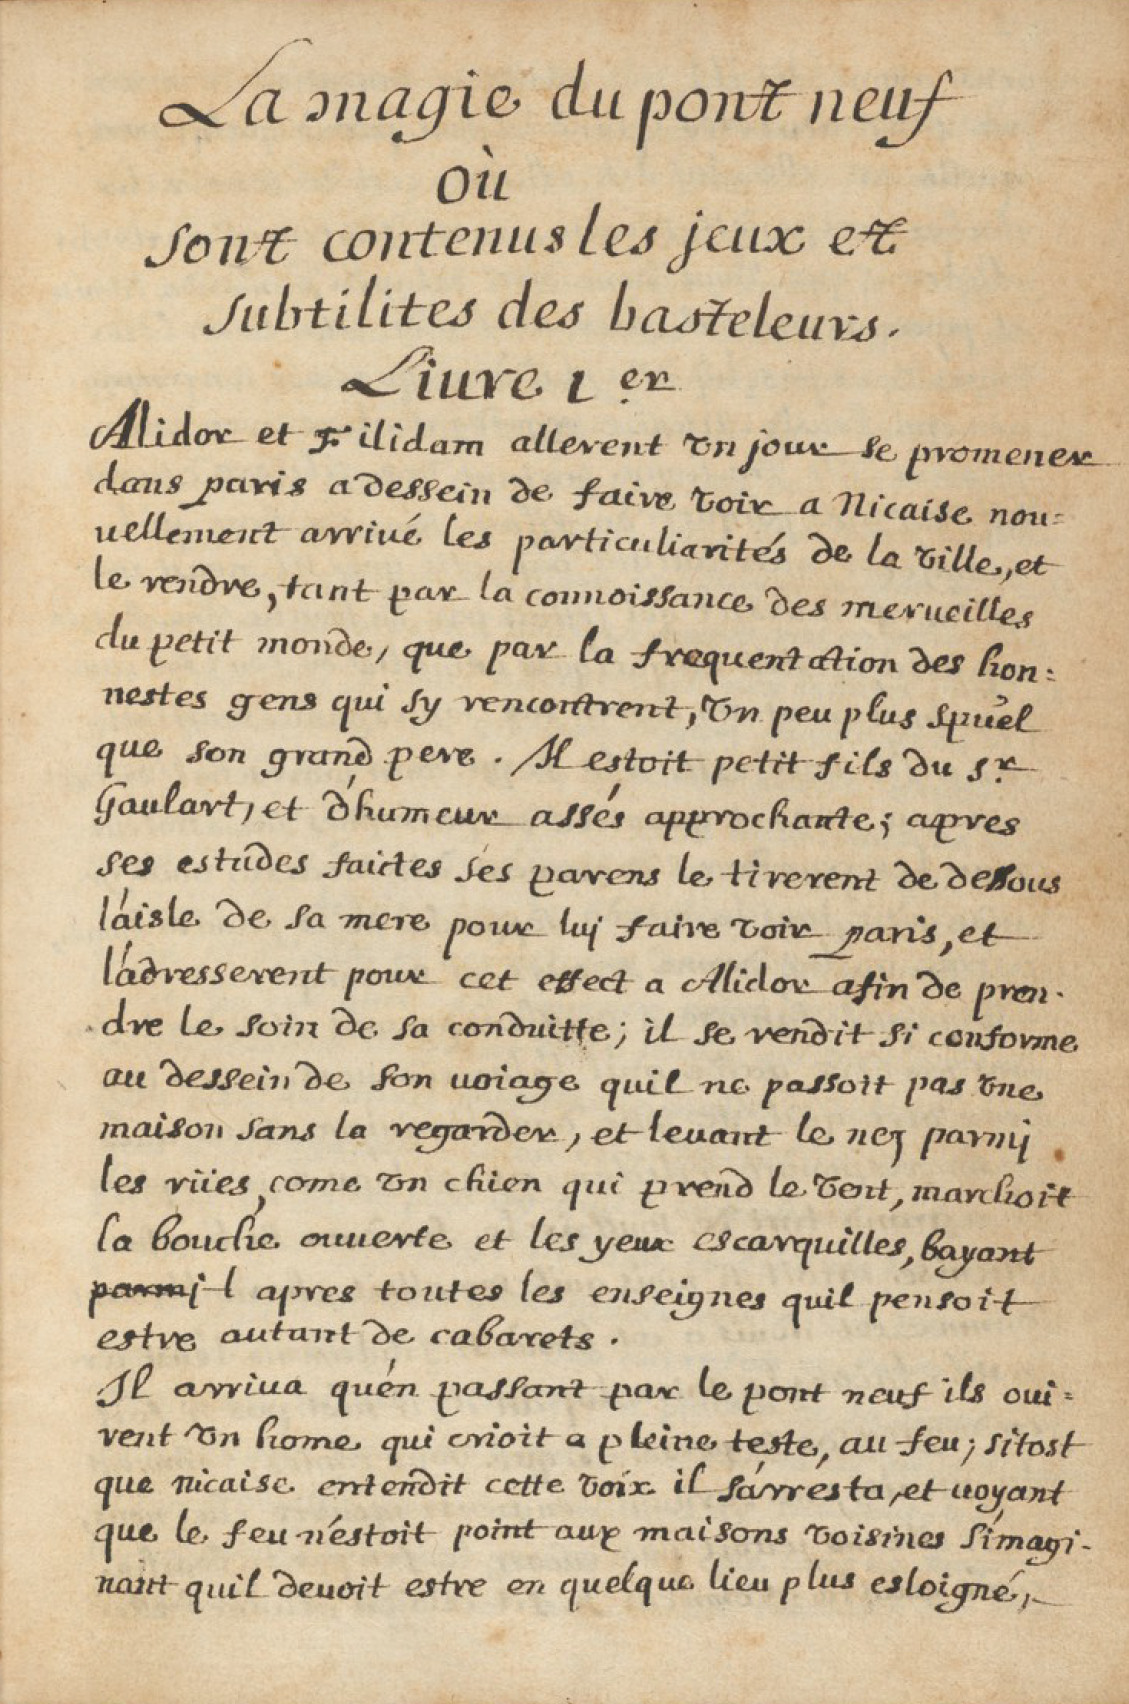 La magie du pont neuf
où
sont contenus les jeux et
subtilites des basteleurs.
Liure 1er
Alidor et Filidam allerent vn jour se promener
dans paris a dessein de faire voir a Nicaise nou=
uellement arriué les particuliarités de la ville, et
le rendre, tant par la connoissance des merueilles
du petit monde, que par la frequentation des hon=
nestes gens qui sy rencontrent, vn peu plus spuel
que son grand pere. Il estoit petit fils du sr
Gaulart, et d'humeur assés approchante; apres
ses estudes faictes ses parens le tirerent de dessous
l'aisle de sa mere pour luj faire voir paris, et
l'adresserent pour cet effect a Alidor afin de pren-
dre le soin de sa conduitte; il se rendit si conforme
au dessein de son uoiage quil ne passoit pas vne
maison sans la regarder, et leuant le nez parmj
les rües, come vn chien qui prend le vent, marchoit
la bouche ouuerte et les yeux escarquilles, bayant
parmj l apres toutes les enseignes quil pensoit
estre autant de cabarets.
Il arriua qu'en passant par le pont neuf ils oui=
rent vn home qui crioit a pleine teste, au feu; sitost
que nicaise entendit cette voix il s'arresta, et uoyant
que le feu n'estoit point aux maisons voisines s'imagi-
nant quil deuoit estre en quelque lieu plus esloigné,